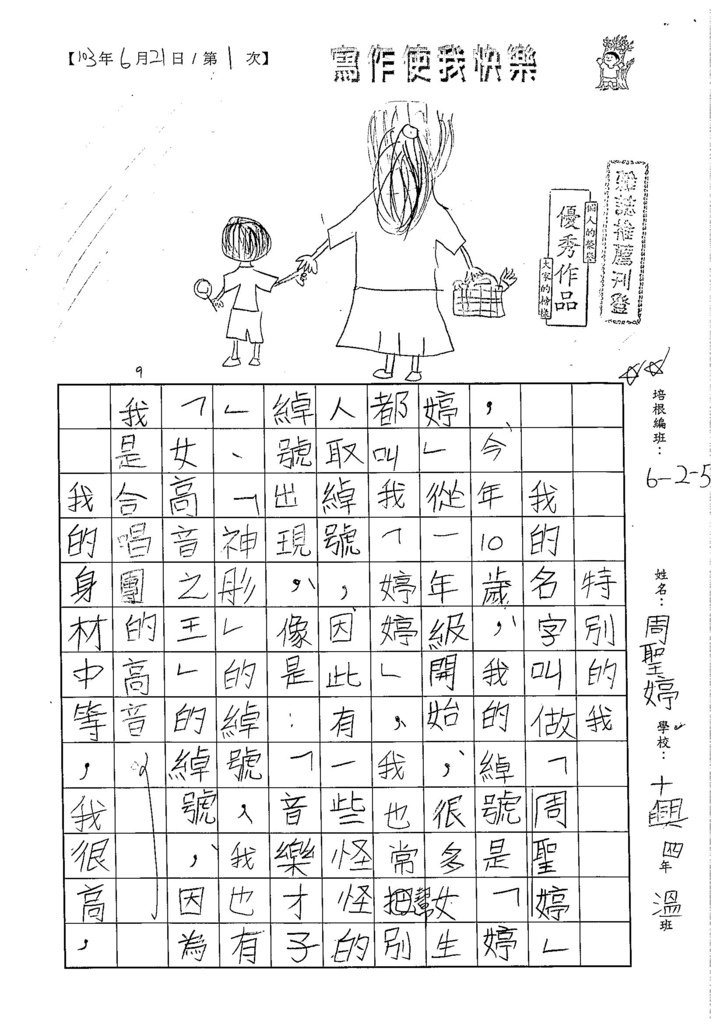 【103年6月21日/第1次】
寫作使我快樂
雜誌推薦刊登
個人的榮譽
優秀作品
大家的榜樣
培根編班：6-2-5
姓名：周聖婷
學校：十興 四年 溫班
特別的我「
我的名字叫做「周聖婷」
，今年10歲，我的綽號是「婷
婷」從一年級開始，很多女生
都叫我「婷婷」，我也常幫別
人取綽號，因此有一些怪怪的
綽號出現，像是：「音樂才子
」、「神彤」的綽號，我也有
「女高音之王」的綽號，因為
我是合唱團的高音
我的身材中等，我很高，